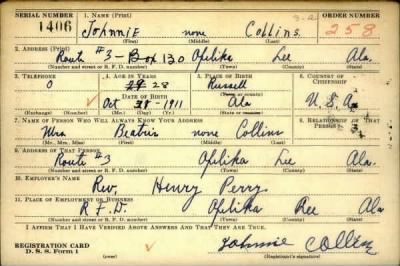 SERIAL NUMBER 1. NAME (Print) ORDER NUMBER
1406 Johnnie none Collins. 258
(First) (Middle) (Last)
2. ADDRESS (Print)
Route #3 - Box 130 Opelika Lee Ala.
(Number and street or R. F. D. number) (Town) (County) (State)
3. TELEPHONE 4. AGE IN YEARS 5. PLACE OF BIRTH 6. COUNTRY OF CITIZENSHIP
0 28 Russell
DATE OF BIRTH (Town or county)
Oct 1911 Ala U. S. A.
(Exchange) (Number) (Mo.) (Day) (Yr.) (State or country)
7. NAME OF PERSON WHO WILL ALWAYS KNOW YOUR ADDRESS 8. RELATIONSHIP OF THAT PERSON
Mrs Beatris none Collins
(Mr., Mrs., Miss) (First) (Middle) (Last)
9. ADDRESS OF THAT PERSON
Route #3 Opelika Lee Ala.
(Number and street or R. F. D. number) (Town) (County) (State)
10. EMPLOYER'S NAME
Rev. Henry Perry
11. PLACE OF EMPLOYMENT OR BUSINESS
R. F. D. Opelika Lee Ala
(Number and street or R. F. D. number) (Town) (County) (State)
I AFFIRM THAT I HAVE VERIFIED ABOVE ANSWERS AND THAT THEY ARE TRUE.
REGISTRATION CARD
D. S. S. Form 1 (over) Johnnie Collins
(Registrant's signature)